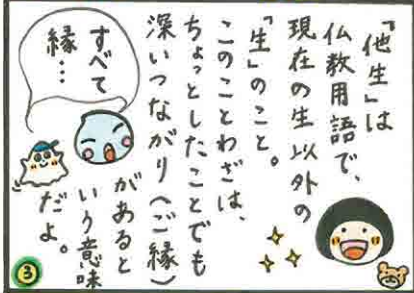 「他生」は
仏教用語で、
現在の生以外の
「生」のこと。
このことわざは、
ちょっとしたことでも
深いつながり(ご縁)
があると
いう意味
だよ。
すべて
縁…
3